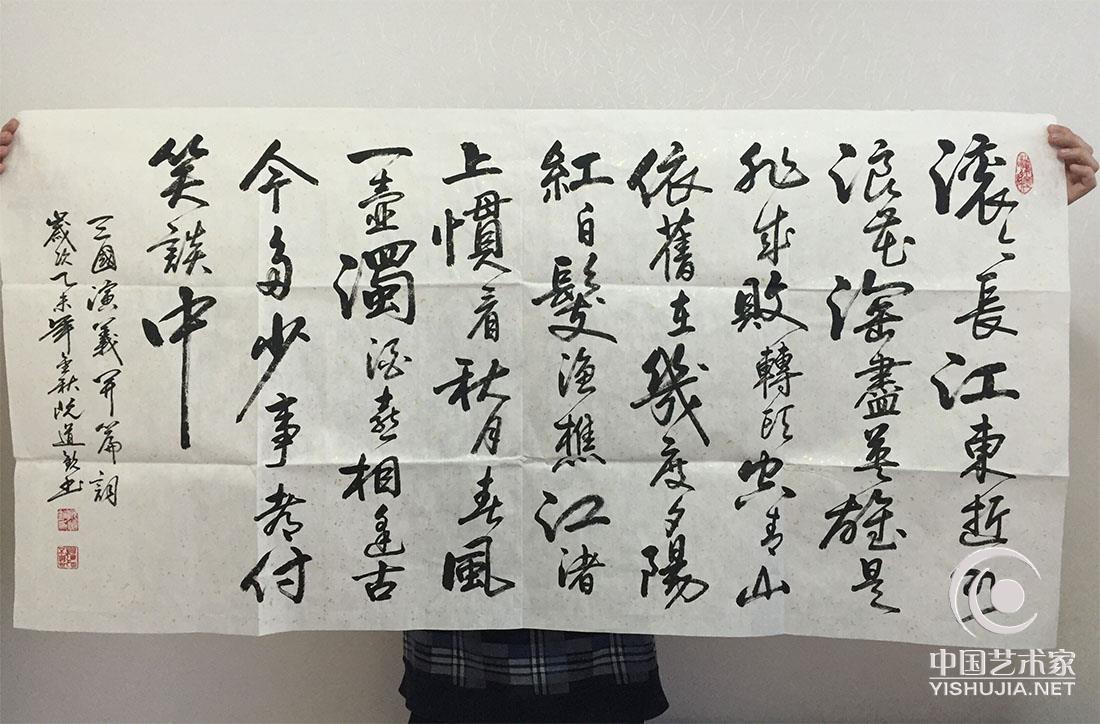 滚々長江東逝水
浪花淘盡英雄是
非成敗轉頭空青山
依舊在幾度夕陽
紅白髮漁樵江渚
上慣看秋月春風
一壺濁酒喜相逢古
今多少事都付
笑談中
三國演義開篇詞
歲次乙未年金秋阮道書
中国艺术家
YISHUJIA.NET